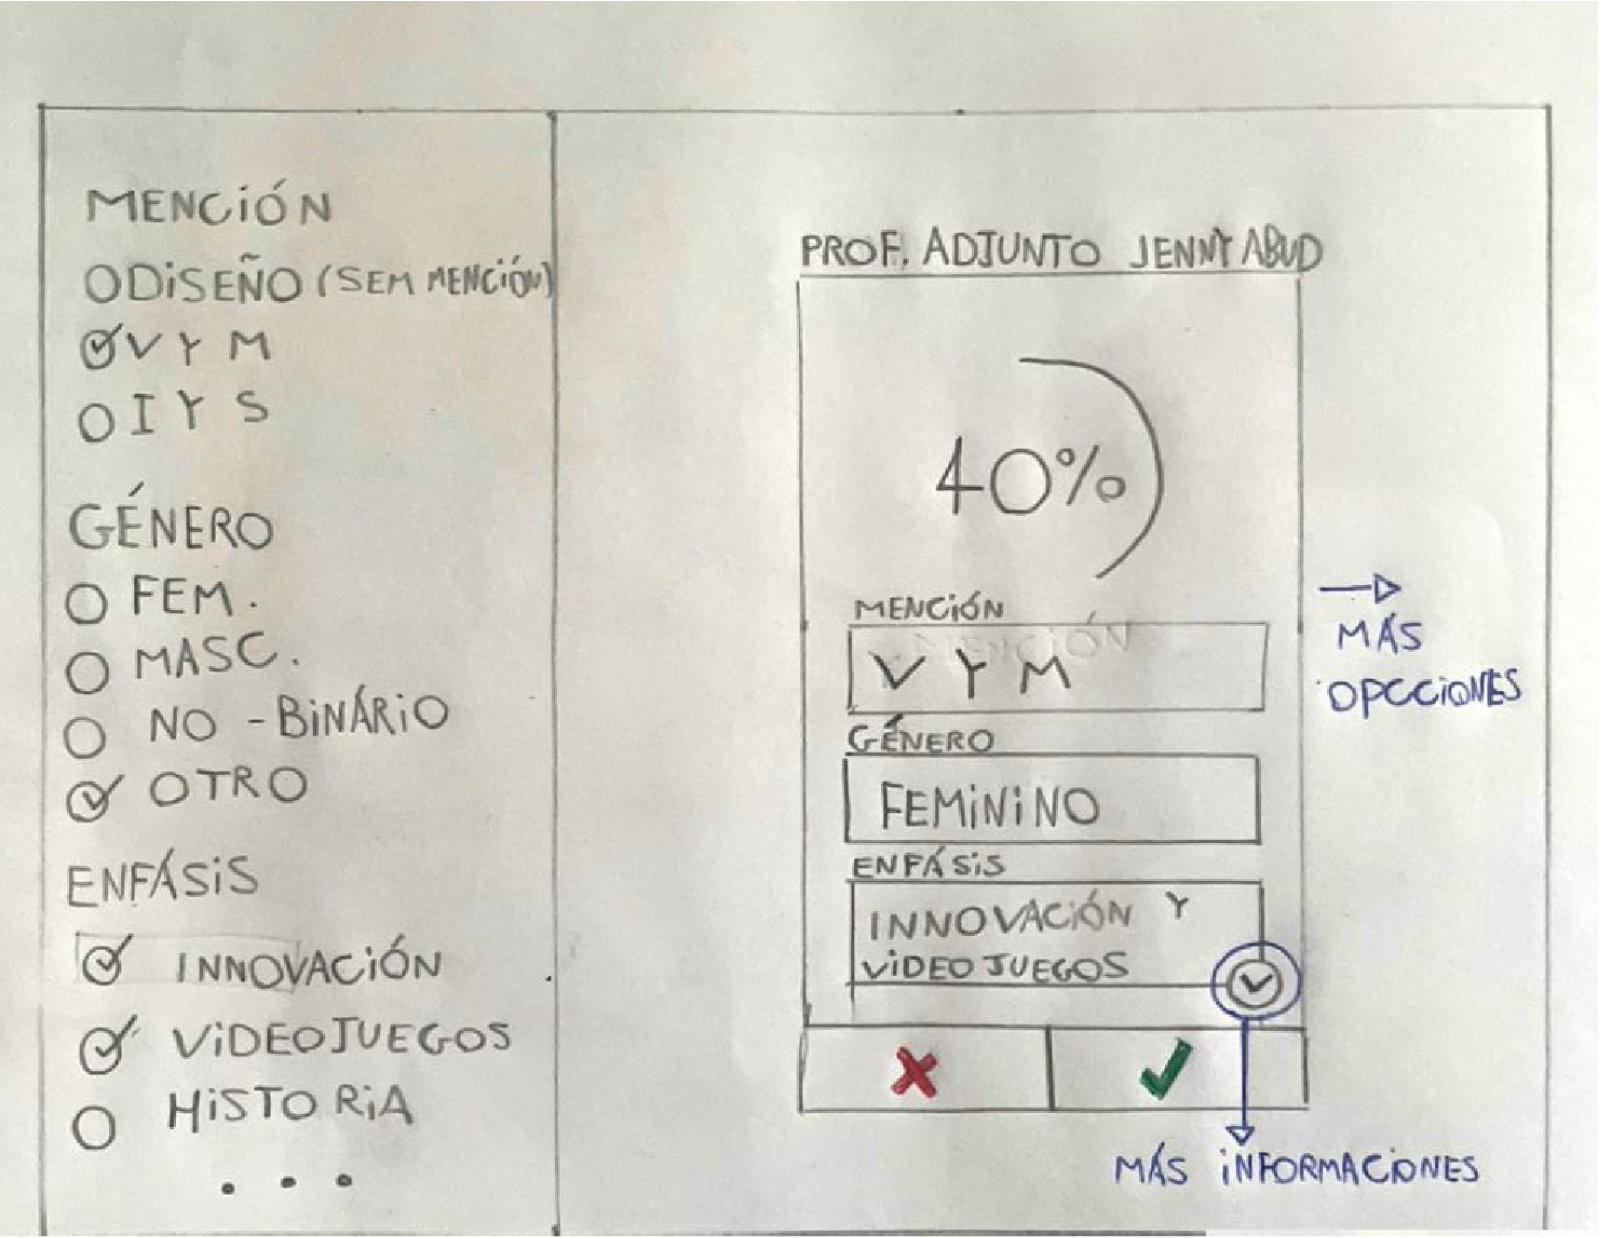 MENCIÓN
DISEÑO (SEM MENCIÓN)
V Y M
I Y S
GÉNERO
FEM.
MASC.
NO - BINÁRIO
OTRO
ENFÁSIS
INNOVACIÓN
VIDEOJUEGOS
HISTORIA
...
PROF. ADJUNTO JENNY ABUD
40%
MENCIÓN
V Y M
GÉNERO
FEMININO
ENFÁSIS
INNOVACIÓN Y
VIDEOJUEGOS
MÁS
OPCCIONES
MÁS INFORMACIONES